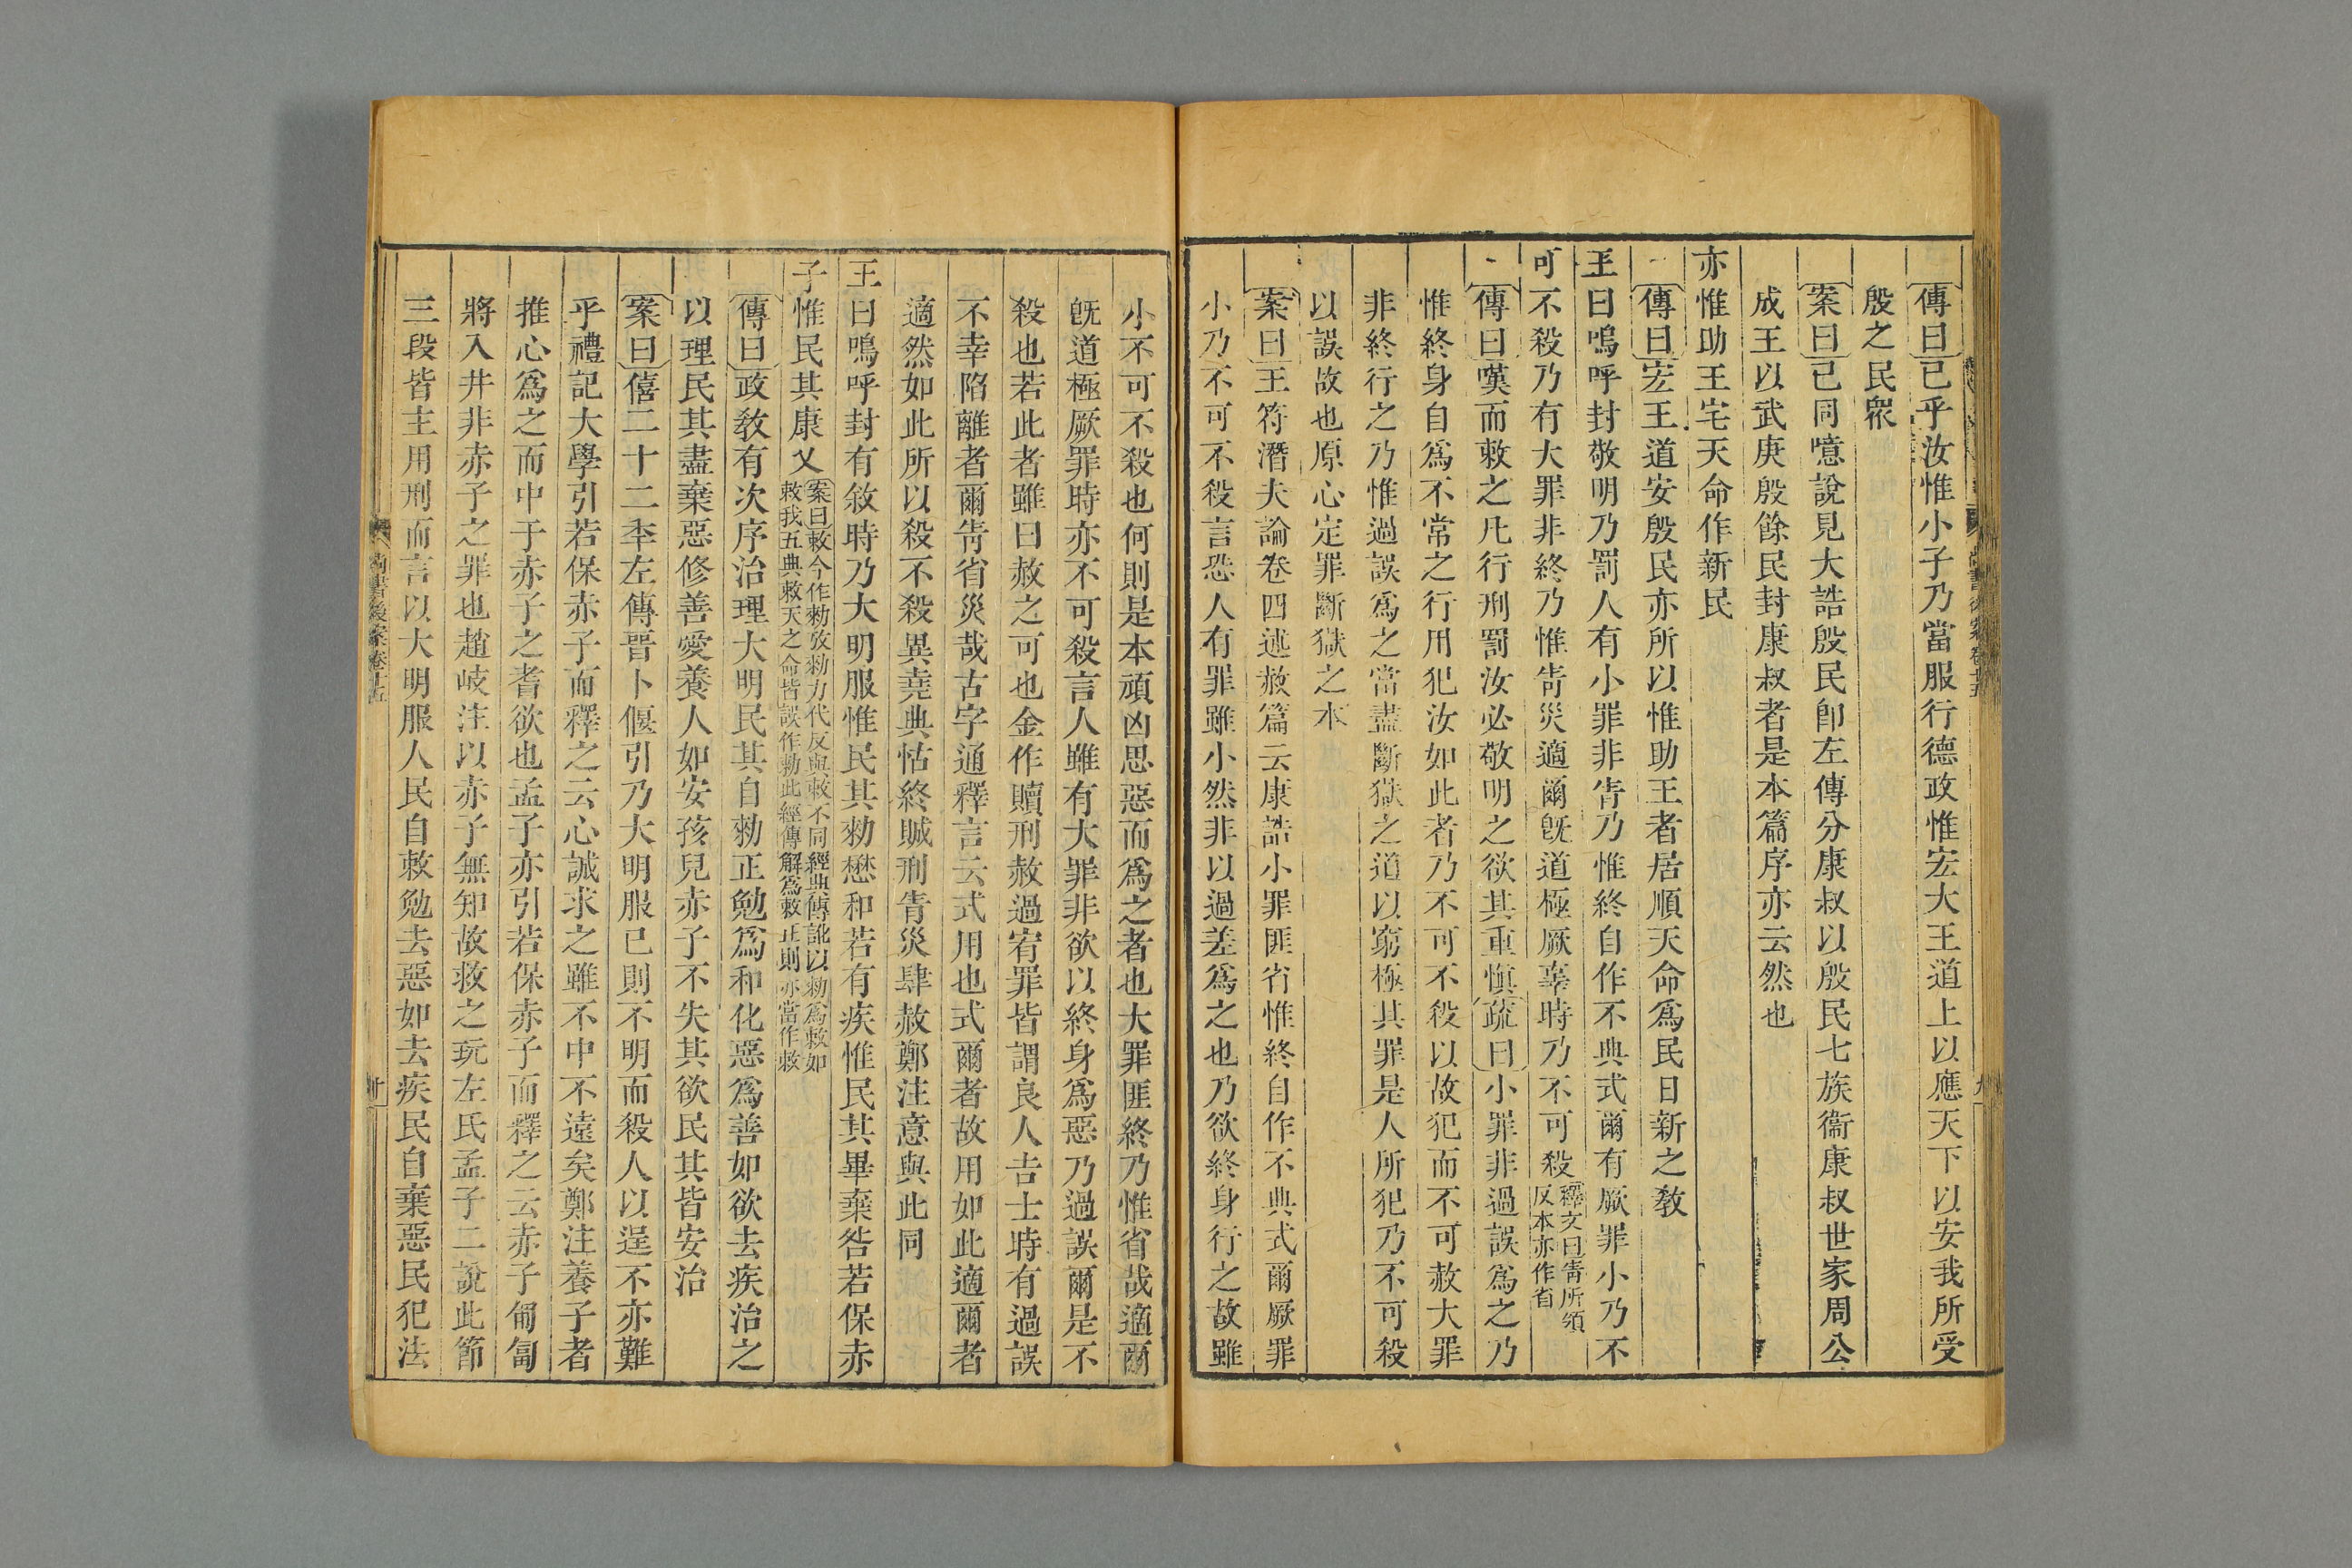 傳曰已乎汝惟小子乃當服行德政惟宏大王道上以應天下以安我所受
殷之民衆
案曰已同噫說見大誥殷民卽左傳分康叔以殷民七族衞康叔世家周公
成王以武庚殷餘民封康叔者是本篇序亦云然也
亦惟助王宅天命作新民
傳曰宏王道安殷民亦所以惟助王者居順天命爲民日新之敎
王曰嗚呼封敬明乃罰人有小罪非眚乃惟終自作不典式爾有厥罪小乃不
可不殺乃有大罪非終乃惟眚災適爾旣道極厥辜時乃不可殺釋文曰眚所領
反本亦作省
傳曰嘆而敕之凡行刑罰汝必敬明之欲其重愼疏曰小罪非過誤爲之乃
惟終身自爲不常之行用犯汝如此者乃不可不殺以故犯而不可赦大罪
非終行之乃惟過誤爲之當盡斷獄之道以窮極其罪是人所犯乃不可殺
以誤故也原心定罪斷獄之本
案曰王符潛夫論卷四述赦篇云康誥小罪匪省惟終自作不典式爾厥罪
小乃不可不殺言恐人有罪雖小然非以過差爲之也乃欲終身行之故雖
小不可不殺也何則是本頑凶思惡而爲之者也大罪匪終乃惟省哉適爾
旣道極厥罪時亦不可殺言人雖有大罪非欲以終身爲惡乃過誤爾是不
殺也若此者雖曰赦之可也金作贖刑赦過宥罪皆謂良人吉士時有過誤
不幸陷離者爾眚省災哉古字通釋言云式用也式爾者故用如此適爾者
適然如此所以殺不殺異堯典怙終賊刑眚災肆赦鄭注意與此同
王曰嗚呼封有敘時乃大明服惟民其勑懋和若有疾惟民其畢棄咎若保赤
子惟民其康乂案曰敕今作勅攷勑力代反與敕不同經典傳訛以勑爲敕如
敕我五典敕天之命皆誤作勑此經傳解爲敕正則亦當作敕
傳曰政敎有次序治理大明民其自勑正勉爲和化惡爲善如欲去疾治之
以理民其盡棄惡修善愛養人如安孩兒赤子不失其欲民其皆安治
案曰僖二十二年左傳晉卜偃引乃大明服已則不明而殺人以逞不亦難
乎禮記大學引若保赤子而釋之云心誠求之雖不中不遠矣鄭注養子者
推心爲之而中于赤子之耆欲也孟子亦引若保赤子而釋之云赤子匍匐
將入井非赤子之罪也趙岐注以赤子無知故救之玩左氏孟子二說此節
三段皆主用刑而言以大明服人民自敕勉去惡如去疾民自棄惡民犯法
尚書後案卷十五